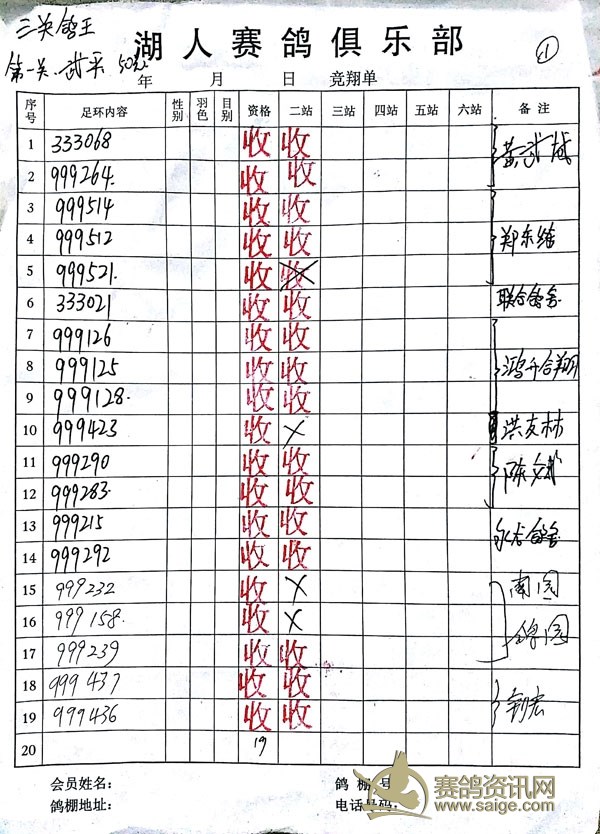 三关鸽王
湖人赛鸽俱乐部
①
第一关 武平 50元
年 月 日 竞翔单
序号 足环内容 性别 羽色 目别 资格 二站 三站 四站 五站 六站 备注
1 333068 收 收
2 999264. 收 收
3 999514 收 收
4 999512 收 收 郑东维
5 999521. 收 收
6 333021 收 收 联合鸽舍
7 999126 收 收
8 999125 收 收 鸿升合翔
9 999128. 收 收
10 999423 收 X 洪友林
11 999290 收 收
12 999283. 收 收
13 999215 收 收
14 999292 收 收
15 999232 收 X 南园
16 999158. 收 X 鸽园
17 999239 收 收
18 999437 收 收
19 999436 收 收
20 19
会员姓名: 鸽棚 号
鸽棚地址: 电话号码:
赛鸽资讯网
www.saige.com